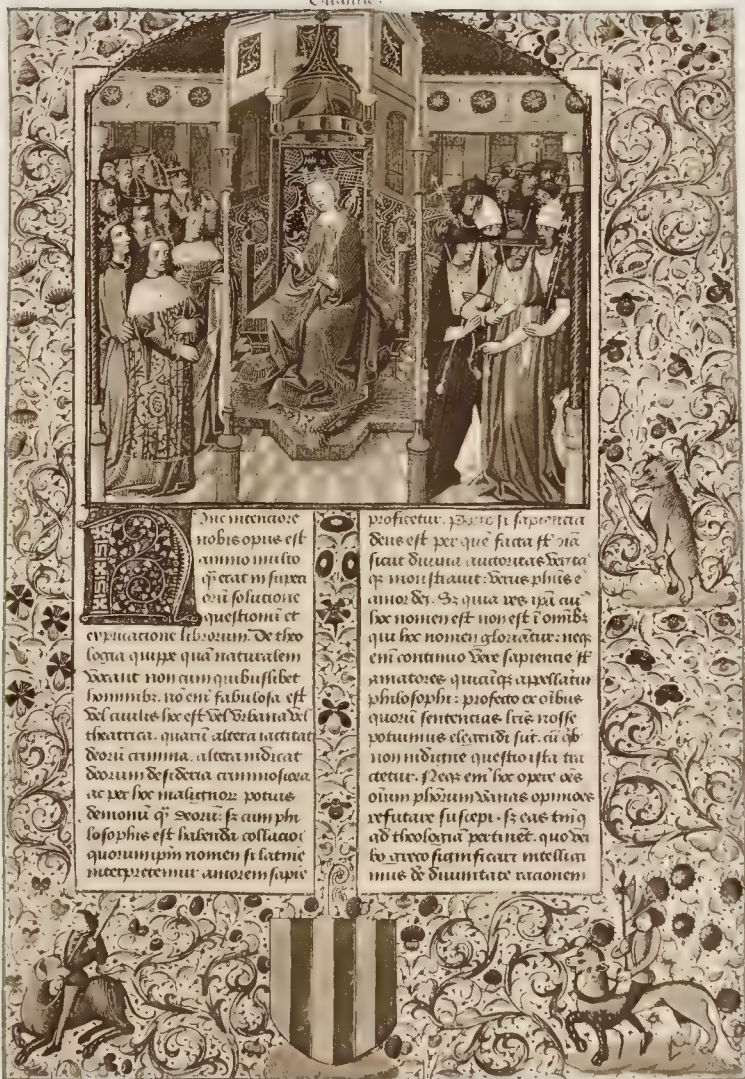 NVnc intenciore
nobis opus est
animo multo
qͫ erat in superi
orū solutione
questionū et
explicatione librorum. De theo
logia quippe quā naturalem
vocant non cum quibuslibet
hominibꝫ. nō em̄ fabulosa est
vel ciuilis hoc est vel vrbana vel
theatrica. quarū altera iactitat
deorū crimina. altera indicat
deorum desideria criminosiora
ac per hoc malignorꝝ potius
demonū qͫ deorū: sꝫ cum phi
losophis est habenda collacio:
quorum ipm̄ nomen si latine
interpretemur amorem sapie
proficetur. Porro si sapiencia
deus est per quē facta sūt oīa
sicut diuina auctoritas verita
qꝫ monstrauit: verus phūs ē
amor dei. Sꝫ quia res ipā cui
hoc nomen est non est ī omibꝫ
qui hoc nomine gloriātur: neqꝫ
em̄ continuo vere sapiencie sūt
amatores quicūqꝫ appellātur
philosophi: profecto ex oībus
quorū sentencias lr̄is nosse
potuimus eligendi sūt. cū qͥbꝫ
non indigne questio ista tra
ctetur. Neqꝫ em̄ hoc opere oēs
oīum ph̄orum vanas opiniōēs
refutare suscepi. sꝫ eas tm̄ q̄
ad theologiā pertinēt. quo ver
bo greco significari intelligi
mus de diuinitate racionem